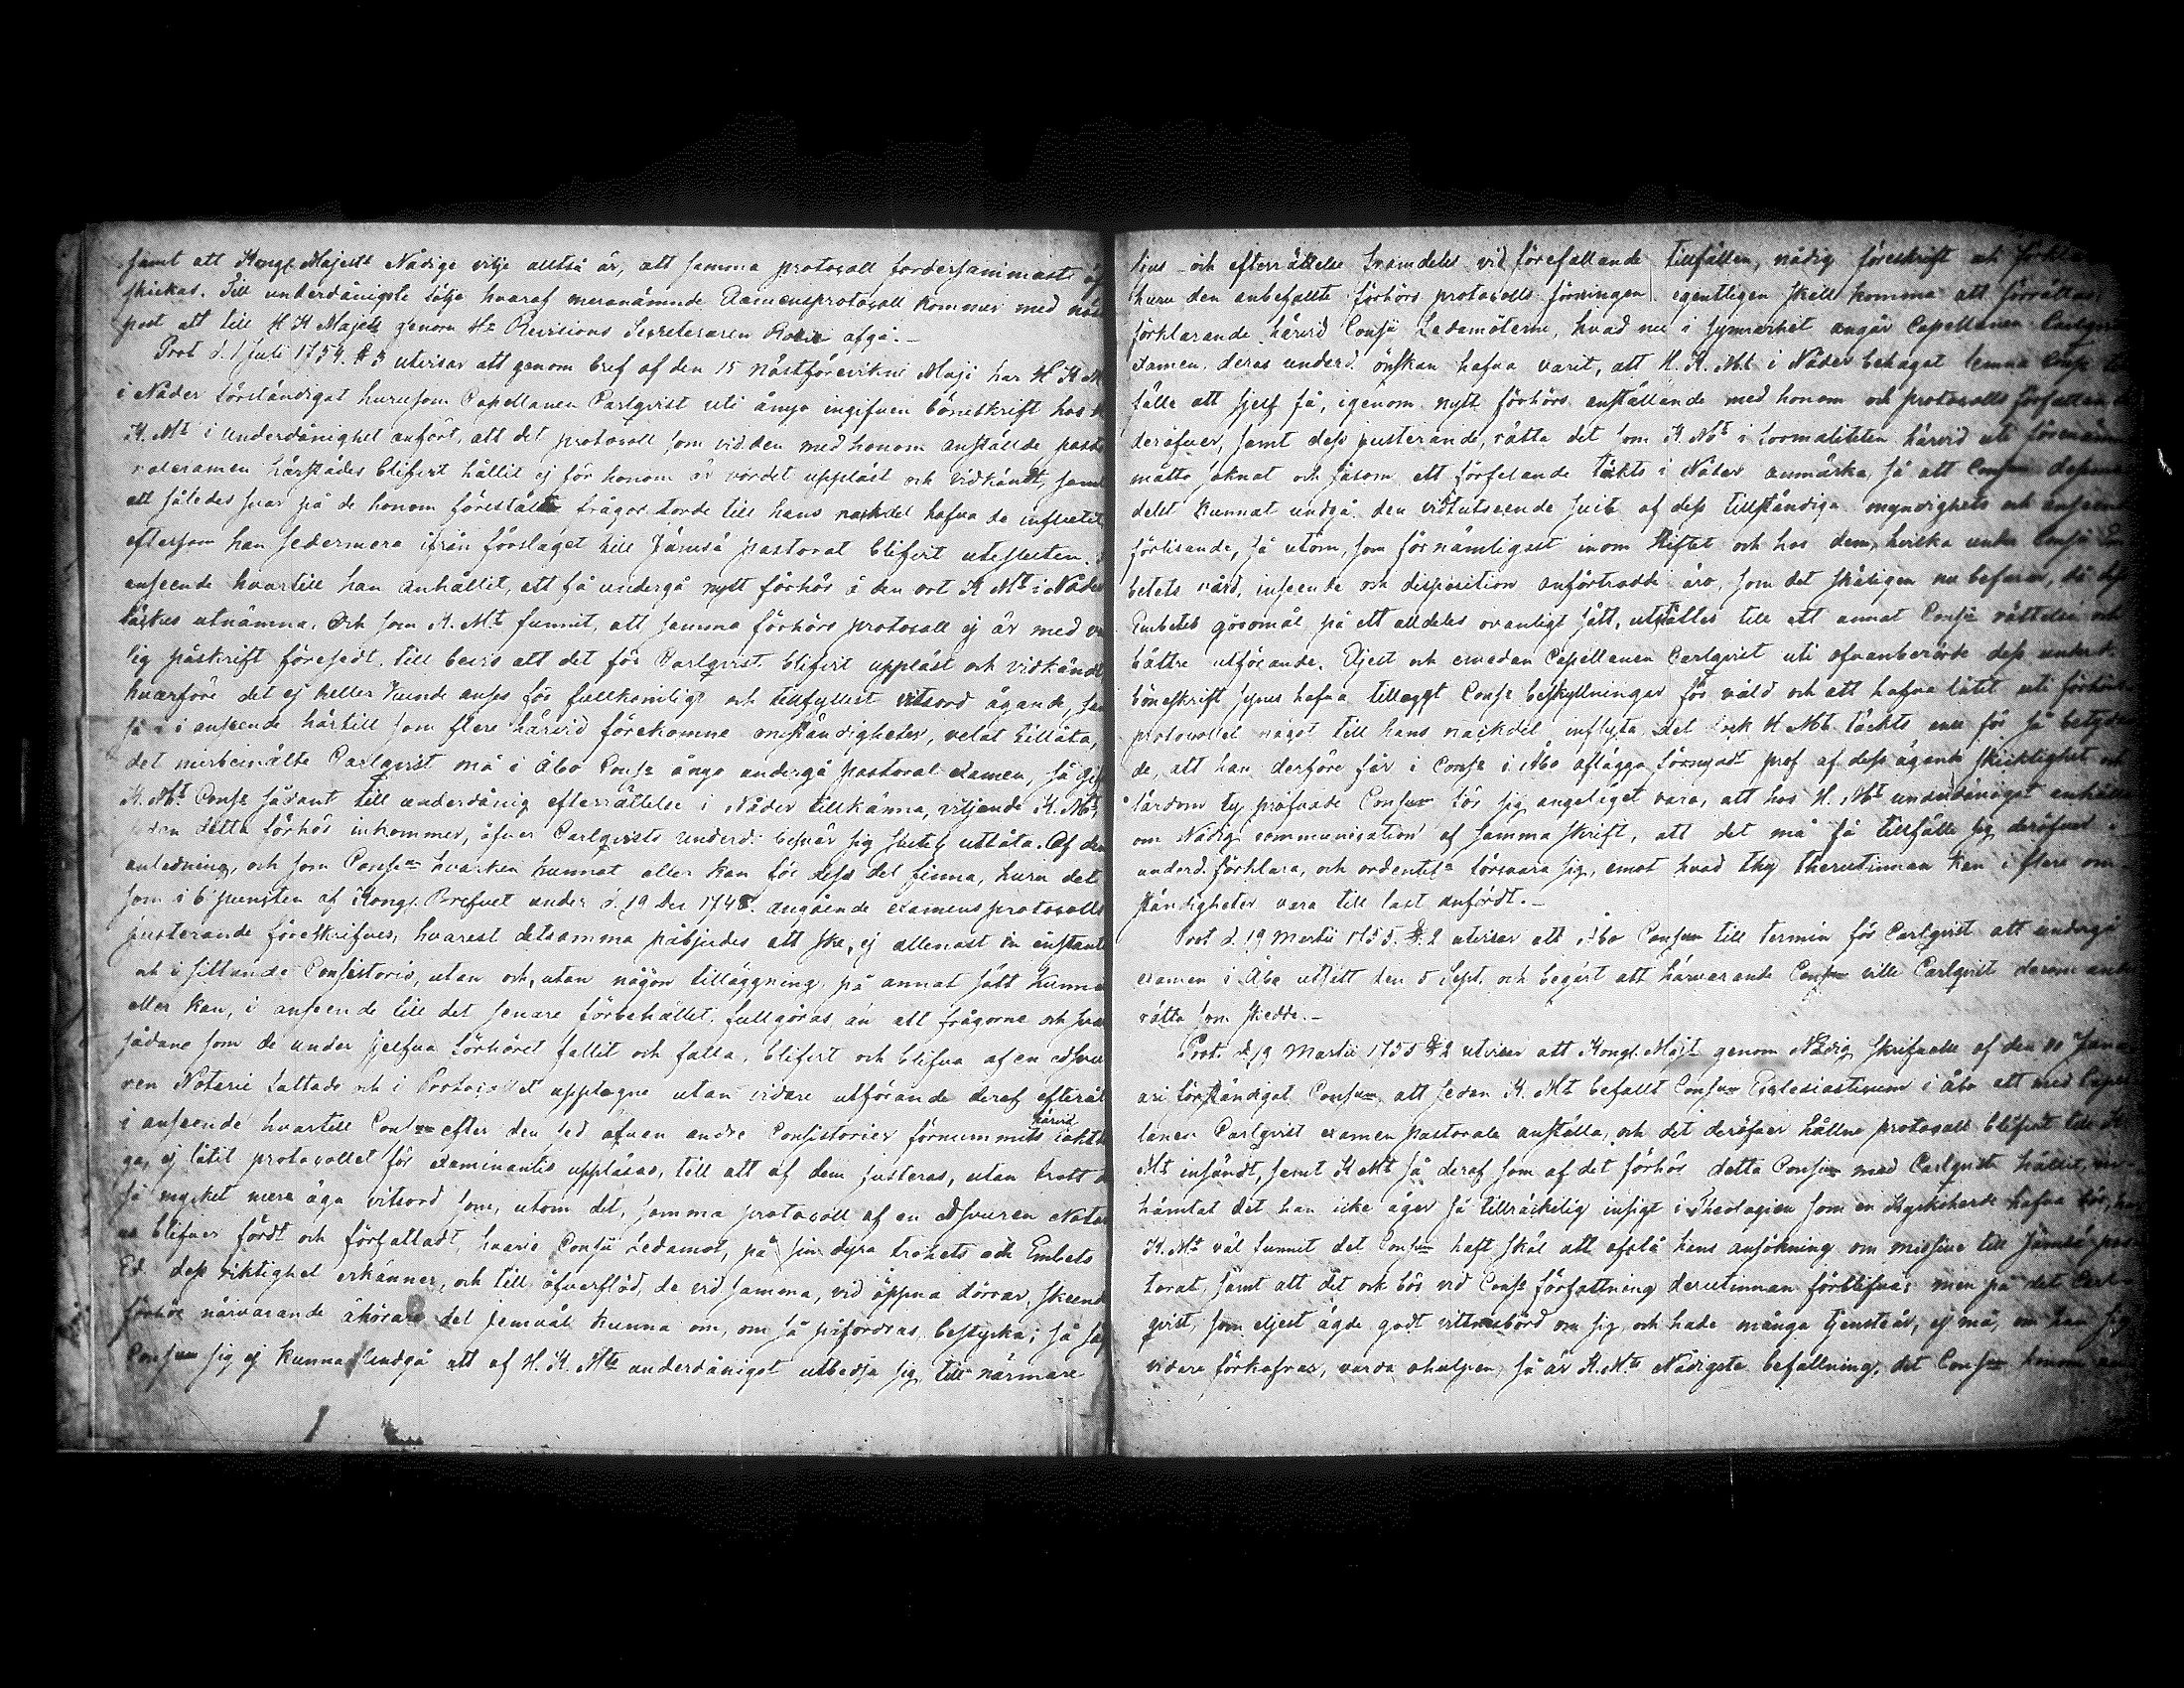 samt att Kongl. Majests Nådige vilje alltså är, att samma protocoll fordersammast
skickas. Till underdånigste följe hvaraf meranämnde Examensprotocoll kommer med
post att till H K Majest genom Hr Revisions Secreteraren afgå. –
Prot d. 1 Juli 1754. § 3 utvisar att genom bref af den 15 nästförevikne Maji har H K M
i Nåder förständigat hurusom Capellanen Carlqvist uti ånyo ingifven böneskrift hos
K. Mt i underdånighet anfört, att det protocoll som vid den med honom anstälde pasto
ralexamen härstädes blifvit hållit ej för honom är vordet uppläst och vidkändt, samt
att således svar på de honom förestälte frågor torde till hans nackdel hafva de influtit
eftersom han sedermera ifrån förslaget till Jämsä pastorat blifvit utesluten.
anseende hvartill han anhållit, att få undergå nytt förhör å den ort K Mt i Nåder
täckes utnämna. Och som K. Mt funnit, att samma förhörs protocoll ej är med
lig påskrift försedt, till bevis att det för Carlqvist blifvit uppläst och vidkändt
hvarföre det ej heller kunde anses för fullkomligt och tillfyllest vitsord ägande,
så i anseende härtill som flere härvid förekomne omständigheter, velat tillåta,
det merbemälte Carlqvist må i Åbo Consr ånyo undergå pastoral examen, så
K. Mt Consr sådant till underdånig efterrättelse i Nåder tillkänna, viljande K. Mt,
sedan detta förhör inkommer, öfver Carlqvists underd. besvär sig slutel. utlåta. Af den
anledning, och som Consum hvarken kunnat eller kan för dess del finna, huru det
som i 6 puncten af Kongl. Brefvet under d. 19 Dec 1748. angående examensprotocolls
justerande föreskrifves, hvarest detsamma påbjudes att ske, ej allenast in instanti
och i sittande Consistorio, utan och, utan någon tilläggning på annat sätt kunna
eller kan, i anseende till det senare förbehållet, fullgöras, än att frågorne och svar
sådane som de under sjelfva förhöret fallit och falla, blifvit och blifva af en edsvu
ren Notarie fattade och i Protocollet upptagne utan vidare utförande deraf efteråt
i anseende hvartill Consum efter den sed äfven andre Consistorier förnummits härvid iaktta
ga, ej låtit protocollet för examinantis uppläsas, till att af dem justeras, utan trott
så mycket mera äga vitsord som, utom det, samma protocoll af en edsvuren Nota
blifver fördt och författadt, hvars Consii Ledamot, på sin dyra trohets och Embets
Ed dess riktighet erkänner, och till öfverflöd, de vid samma, vid öppna dörrar, skeende
förhör närvarande åhörare det jemväl kunna om, om så påfordras, bestyrka; så
Consum sig ej kunna undgå att af H. K. Mts underdånigst utbedja sig, till närmare
och efterrättelse framdeles vid förefallande tillfällen, nådig föreskrift och
huru den anbefallte förhörs protocolls föreningen egentligen skall komma att förrättas
förklarande härvid Consii Ledamöterne, hvad nu i synnerhet angår Capellanen
Examen, deras underd. önskan hafva varit, att H. K. Mt i Nåder behagat lemna Consr
fälle att sjelf få, igenom nytt förhörs anställande med honom och protocolls författande
deröfver, samt dess justerande, rätta det som K. Mt i formaliteten härvid uti
måtto saknat och såsom ett förfelande täckts i Nåder anmärka, så att Consum
delst kunnat undgå den vidtutseende suit af dess tillständiga myndighets och anseende
förlisande, så utom, som förnämligast inom Stiftet och hos dem, hvilka under Consii Em
betets vård, inseende och disposition anförtrodde äro, som det skäligen nu befarar, då dess
Embetes göromål på ett alldeles ovanligt sätt, utställes till ett annat Consii rättelse och
bättre utförande. Eljest och emedan Capellanen Carlqvist uti ofvanberörde dess underd.
böneskrift synes hafva tillagt Consr beskyllningar för våld och att hafva låtit uti
protocollet något till hans nackdel inflyta, det dock K Mt täckts anse för så
de, att han derföre får i Consr i Åbo aflägga förnyadt prof af dess ägande skicklighet och
lärdom ty pröfvade Consum för sig angeläget vara, att hos K. Mt underdånigst anhålla
om Nådig communication af samma skrift, att det må få tillfälle sig deröfver i
underd. förklara, och ordentel. försvara sig, emot hvad thy therutinnan kan i flere om
ständigheter vara till last anfördt. –
Prot d. 19 Martii 1755. §. 2 utvisar att Åbo Consum till termin för Carlqvist att undergå
examen i Åbo utsett den 5 Sept. och begärt att härvarande Consum ville Carlqvist derom under
rätta som skedde. –
Prot. d 19 Martii 1755 § 2 utvisar att Kongl. Majt genom Nådig skrifvelse af den Janu
ari förständigat Consum, att sedan K. Mt befallt Consum Ecclesiasticum i Åbo att med Capel
lanen Carlqvist examen pastorale anställa, och det deröfver hållne protocoll blifvit till K
Mt insändt, samt K Mt så deraf som af det förhör detta Consum med Carlqvist hållit,
hämtat det han icke äger så tillräckelig insigt i Theologien som en Kyrkoherde hafva bör,
K. Mt väl funnit det Consum haft skäl att afslå hans ansökning om missive till Jämsä pas
torat, samt att det och bör vid Consr författning derutinnan förblifva; men på det Carl
qvist, som eljest ägde godt vittnesbörd om sig och hade många tjensteår, ej må, om han sig
vidare förkofrar, varda ohulpen, så är K. Mts Nådigste befallning, det Consum honom